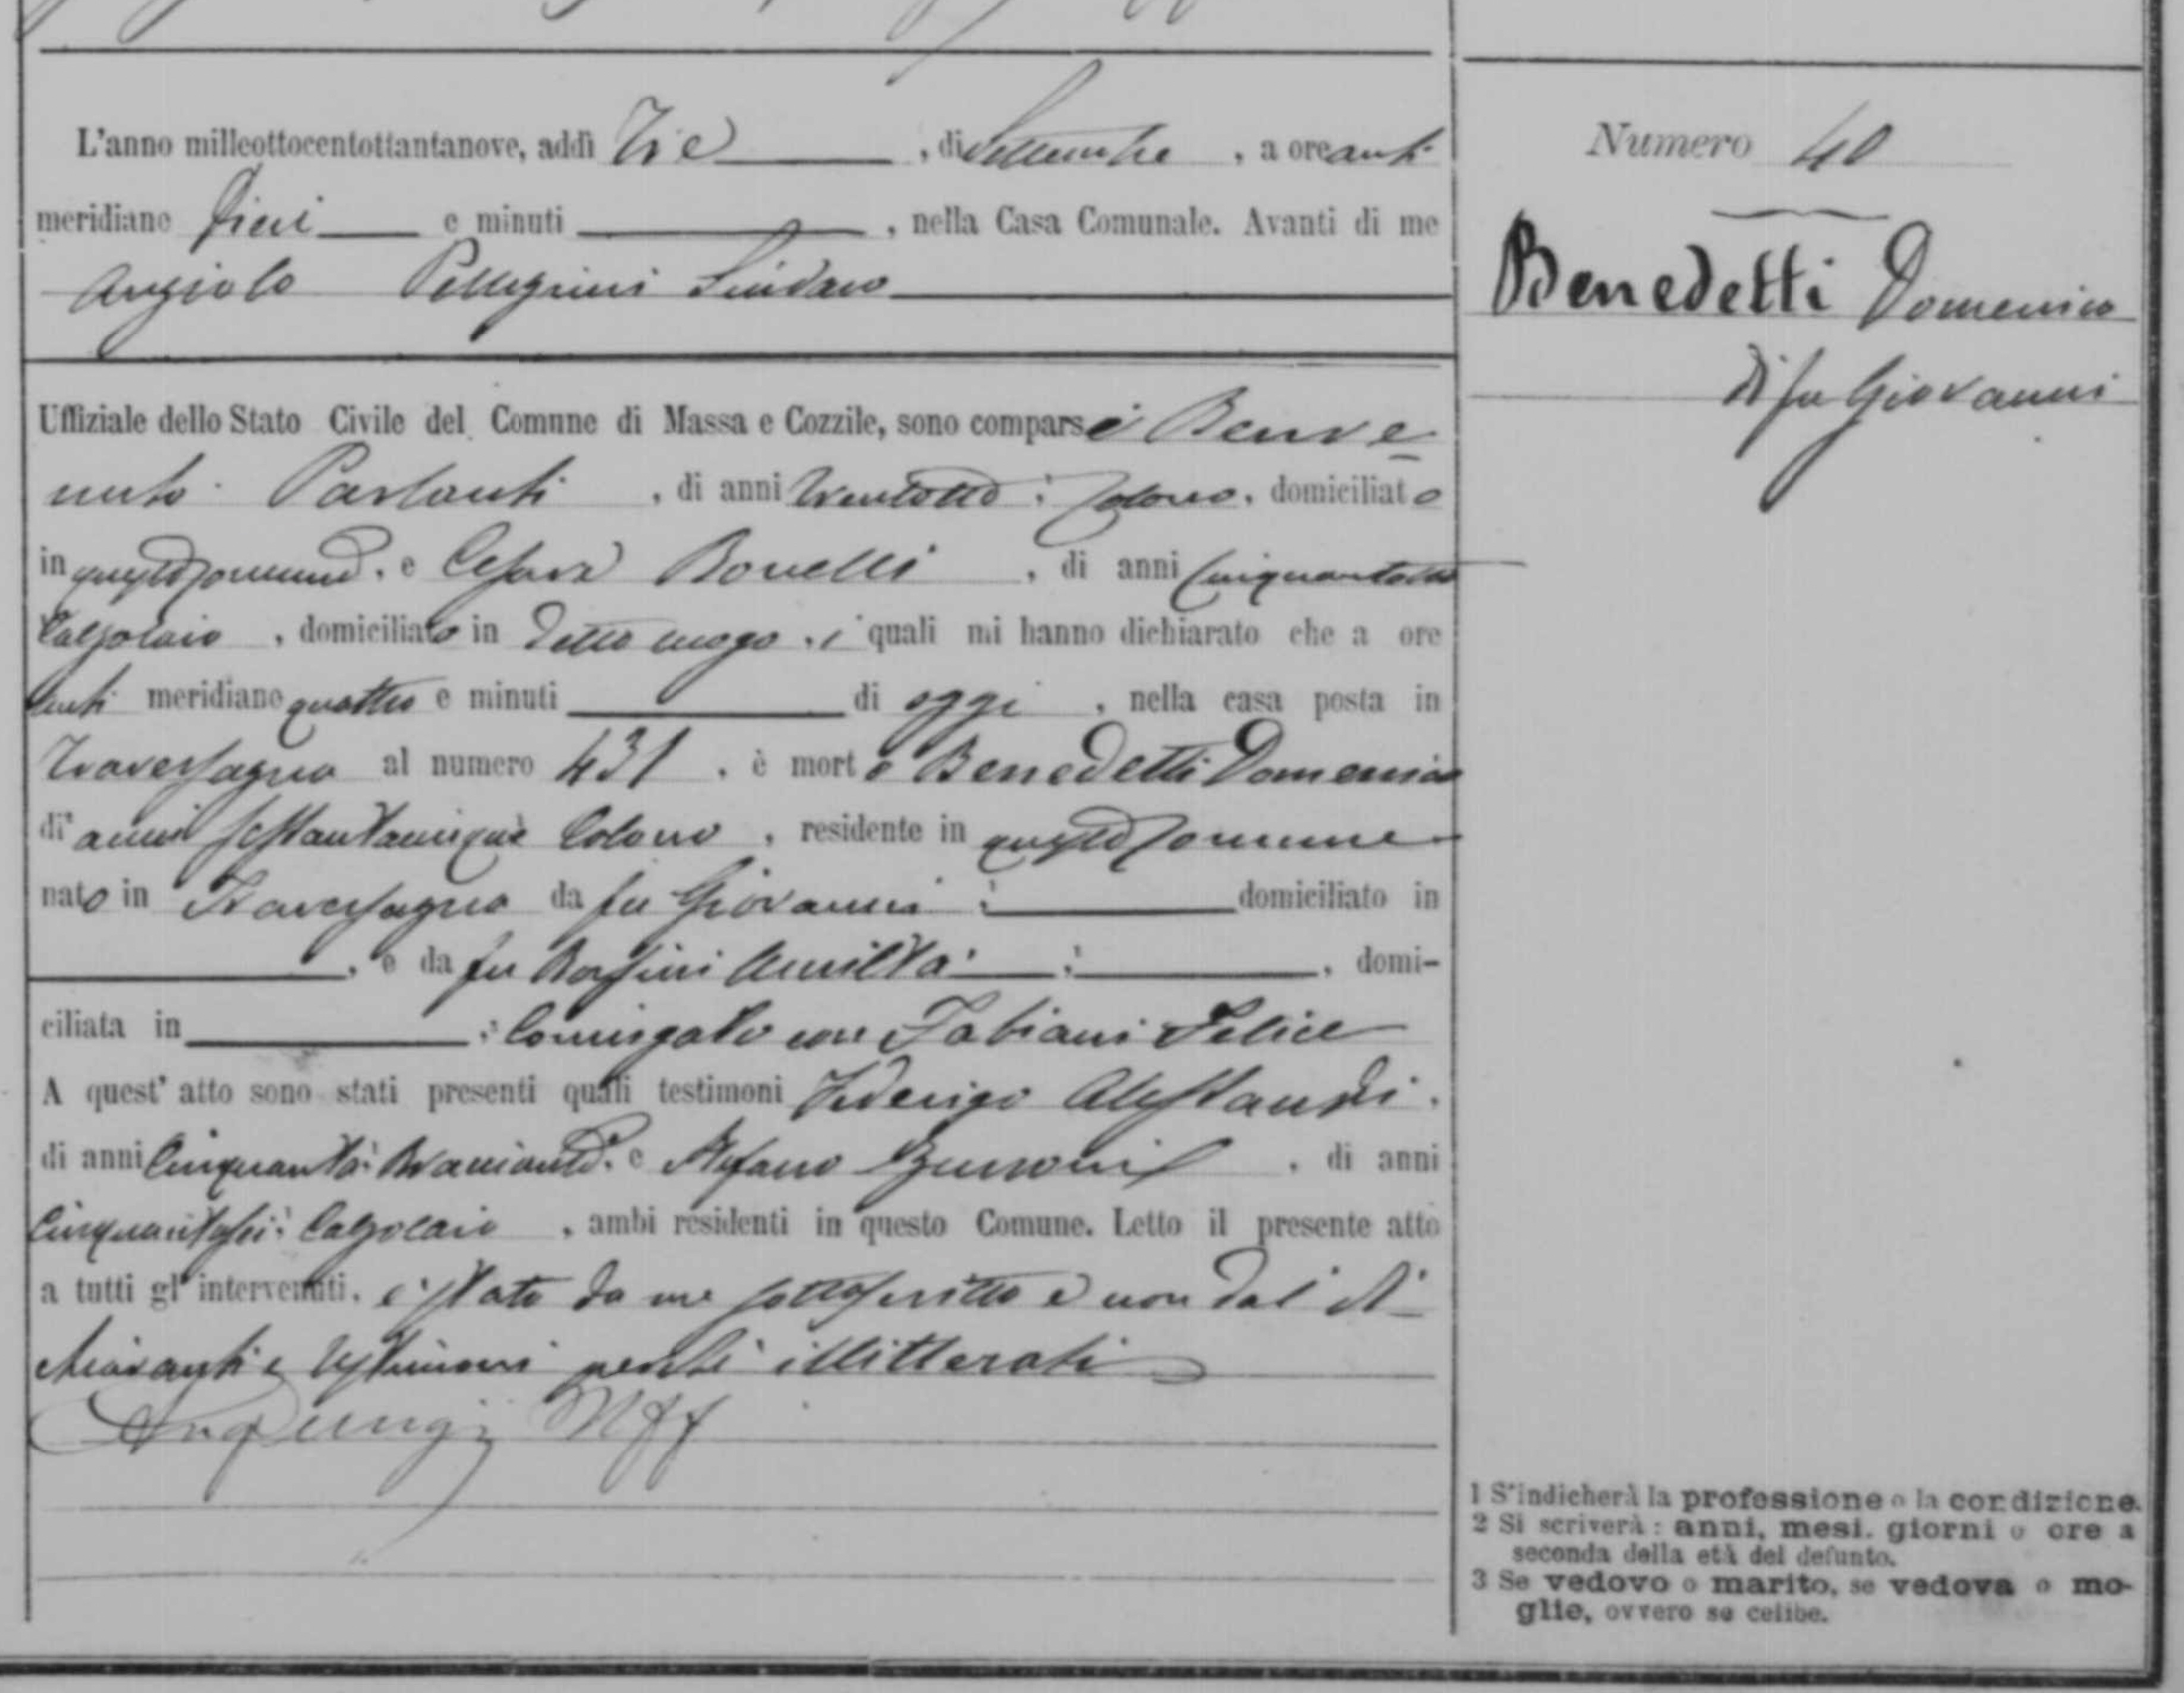 L'anno milleottocentottantanove, addì Tre, di Settembre, a ore anti
meridiane Dieci e minuti, nella Casa Comunale. Avanti di me
Angiolo Pellegrini Sindaco
Uffiziale dello Stato Civile del Comune di Massa e Cozzile, sono comparsi Benve
nuto Parlanti, di anni trentotto: Colono, domiciliato
in questo Comune, e Cesare Bonelli, di anni Cinquantotto
Calzolaio, domiciliato in detto luogo, i quali mi hanno dichiarato che a ore
anti meridiane quattro e minuti di oggi, nella casa posta in
Traversagna al numero 431, è morto Benedetti Domenico
di anni settantacinque Colono, residente in questo Comune
nato in Traversagna da fu Giovanni: domiciliato in
, e da fu, domi-
ciliata in: Coniugato con Fabiani Felice
A quest' atto sono stati presenti quali testimoni Federigo Alessandri,
di anni Cinquanta: Bracciante, e Stefano, di anni
Cinquantasei: Calzolaio, ambi residenti in questo Comune. Letto il presente atto
a tutti gl' intervenuti, è stato da me sottoscritto e non dai di
chiaranti e testimoni perchè illitterati
Numero 40
Benedetti Domenico
di fu Giovanni
1 S'indicherà la professione o la condizione.
2 Si scriverà: anni, mesi, giorni o ore a
seconda della età del defunto.
3 Se vedovo o marito, se vedova o mo-
glie, ovvero se celibe.